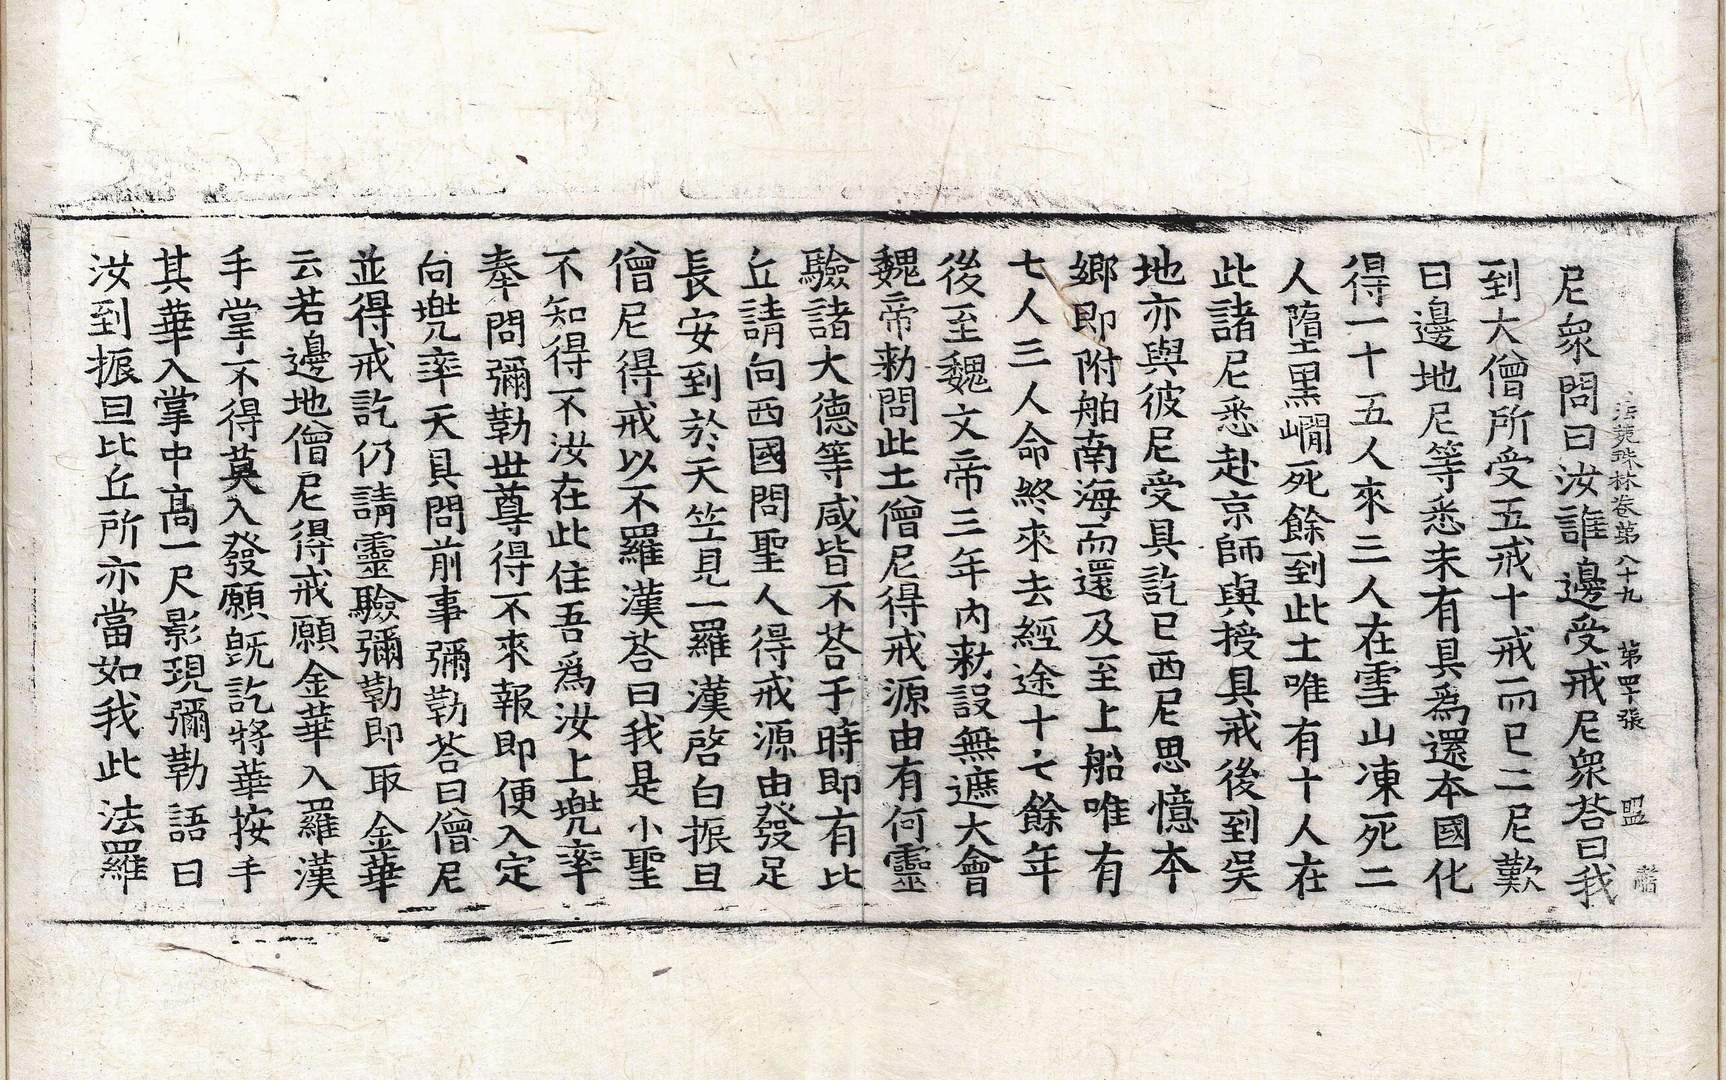 法苑珠林卷第八十九　第四十張　盟
尼衆問曰汝誰邊受戒尼衆荅曰我
到大僧所受五戒十戒而已二尼歎
曰邊地尼等悉未有具爲還本國化
得一十五人來三人在雪山凍死二
人墮黑㵎死餘到此土唯有十人在
此諸尼悉赴京師與授具戒後到吳
地亦與彼尼受具訖已西尼思憶本
鄉即附舶南海而還及至上船唯有
七人三人命終來去經途十七餘年
後至魏文帝三年內勑設無遮大會
魏帝勑問此土僧尼得戒源由有何靈
驗諸大德等咸皆不荅于時即有比
丘請向西國問聖人得戒源由發足
長安到於天竺見一羅漢啓白振旦
僧尼得戒以不羅漢荅曰我是小聖
不知得不汝在此住吾爲汝上兠率
奉問彌勒世尊得不來報即便入定
向兠率天具問前事彌勒荅曰僧尼
並得戒訖仍請靈驗彌勒即取金華
云若邊地僧尼得戒願金華入羅漢
手掌不得莫入發願旣訖將華按手
其華入掌中高一尺影現彌勒語曰
汝到振旦比丘所亦當如我此法羅